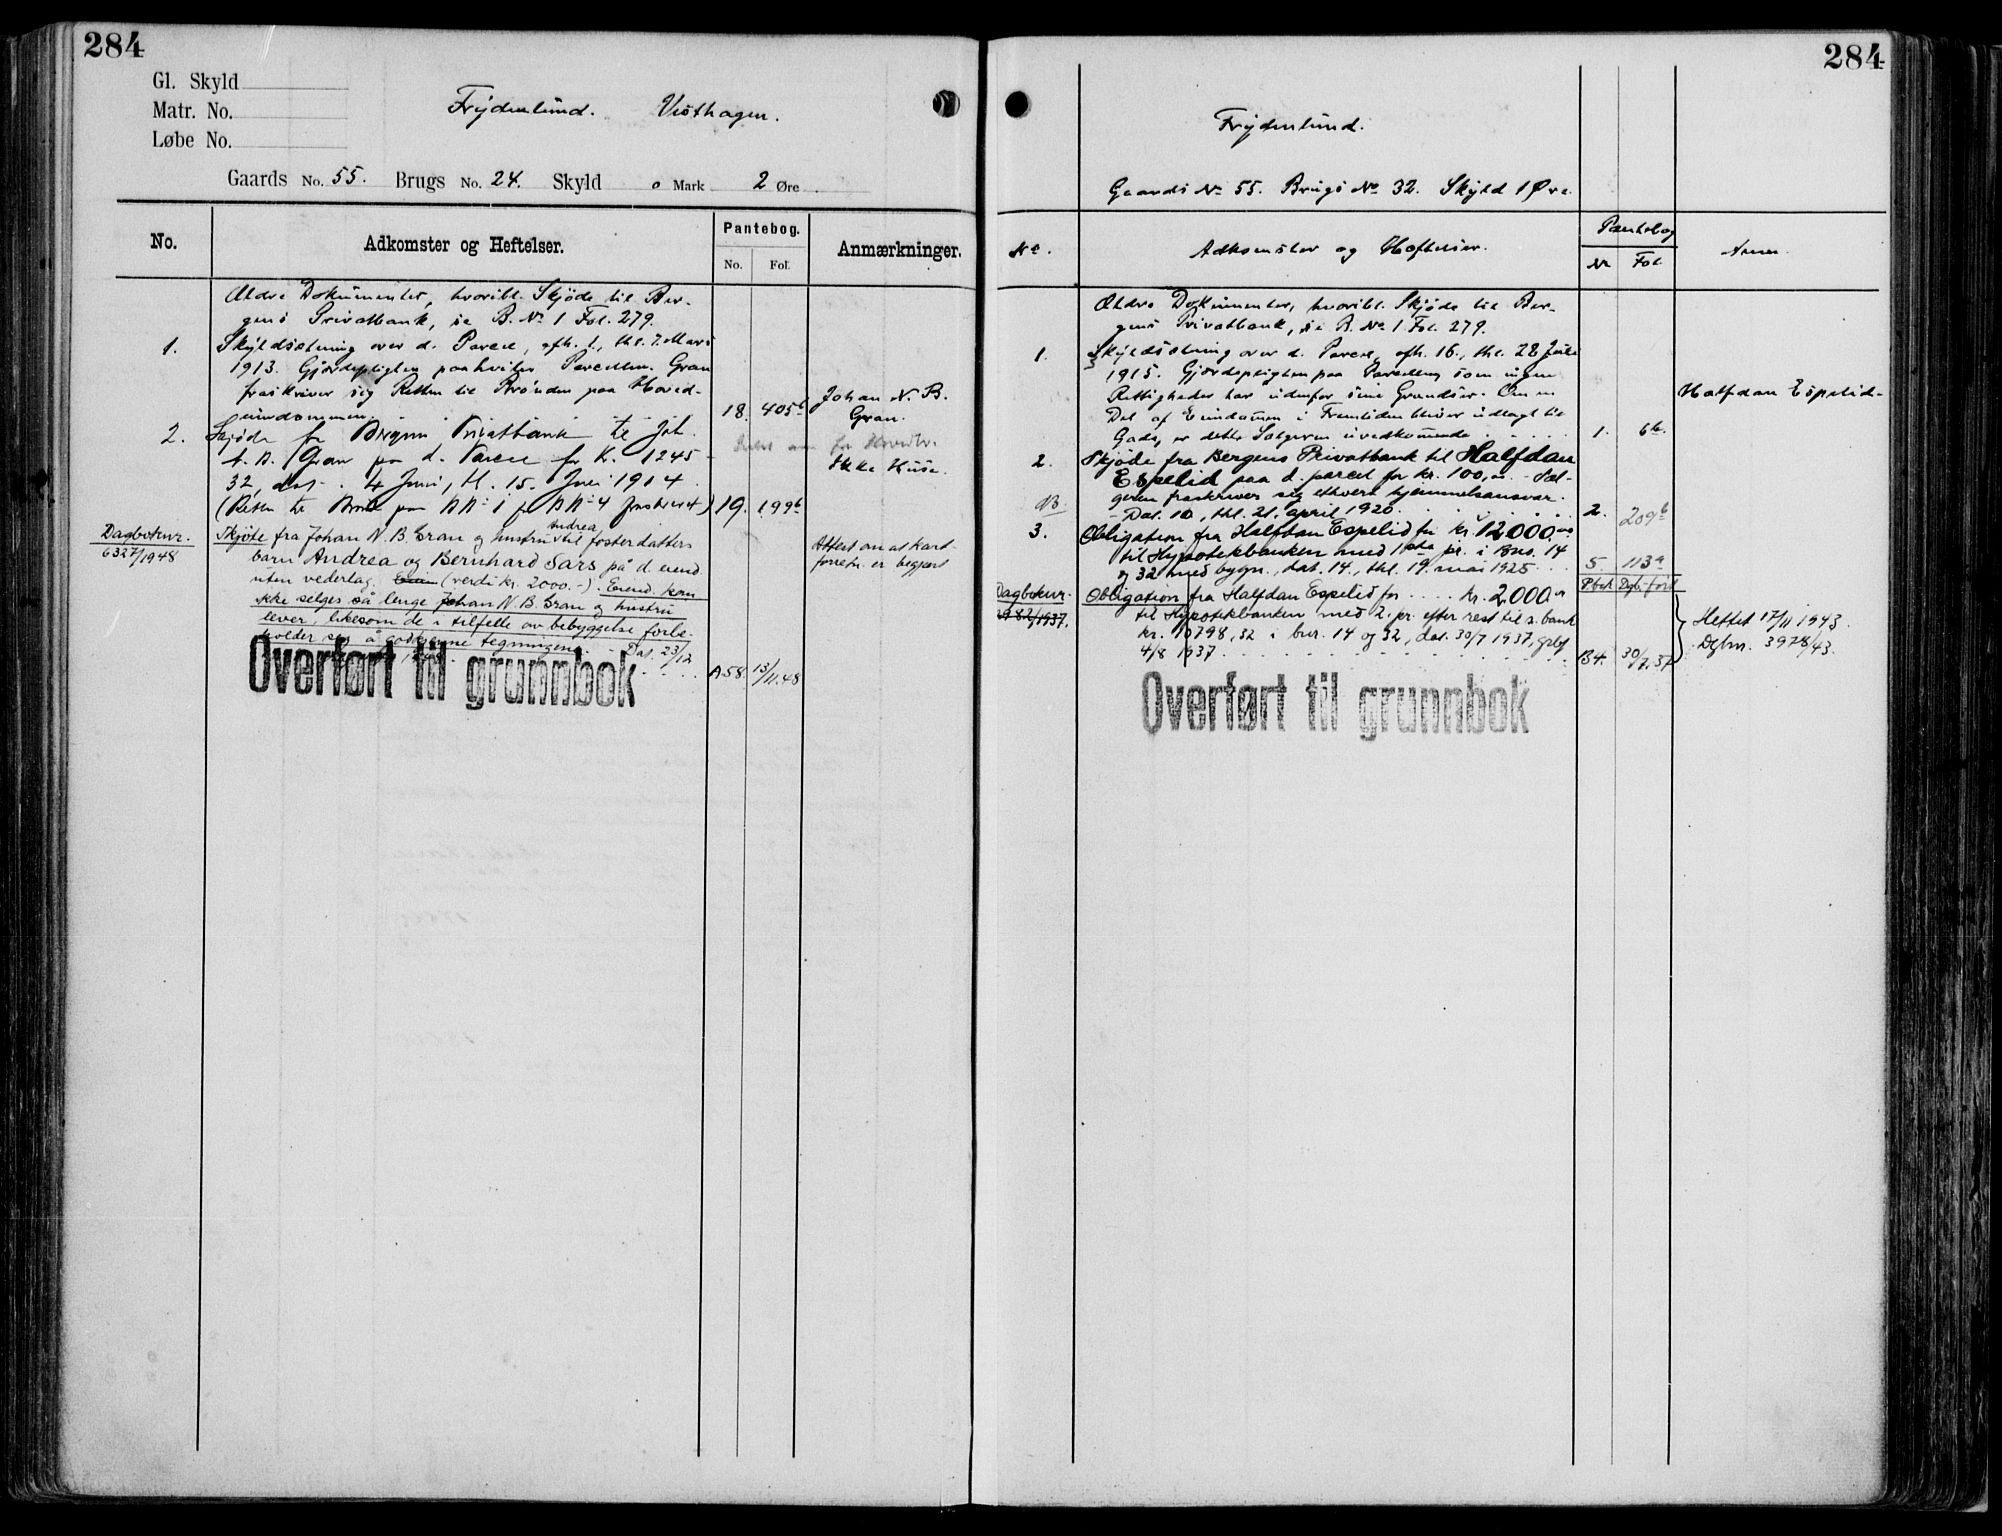 284
Gl. Skyld
Matr. No.
Løbe No.
Frydenlund. Vesthagen.
Gaards No. 55. Brugs No. 24. Skyld 0 Mark 2 Øre
No.
Adkomster og Heftelser.
Pantebog.
No. Fol.
Anmærkninger.
Ældre Dokumenter, hvoribl. Skjøde til Ber-
gens Privatbank, se B. No 1 Fol. 279.
1. Skyldsætning over d. Parcel, afh. 1., thl. 7. Mars
1913. Gjerdepligten paahviler Parcellen. Gran
fraskriver sig Retten til Brønden paa Hoved-
eiendommen. 18. 405b
Johan N. B.
Gran.
2. Skjøde fra Bergens Privatbank til Joh.
N. B. Gran på d. Parcel for K. 1245
32, dat. 4 Juni, tl. 15. Juni 1914.
Ikke Huse.
(Retten til Brønd paa BNo 1 fraskrevet) 19. 199b
Dagboknr.
6327/1948
Skjøte fra Johan N. B. Gran og hustru Andrea til fosterdatters
barn Andrea og Bernhard Sars på d. eiend.
uten vederlag. (verdi kr. 2000.-). Eiend. kan
ikke selges så lenge Johan N. B. Gran og hustru
lever, likesom de i tilfelle av bebyggelse forbe-
holder seg å godkjenne tegningene. - Dat. 23/12
A58. 13/11.48
Attest om at kart-
forretn. er begjært
Overført til grunnbok
284
Frydenlund.
Gaards No 55. Brugs No 32. Skyld 1 Øre
No.
Adkomster og Heftelser.
Pantebog
No Fol.
Anm.
Ældre Dokumenter, hvoribl. Skjøde til Ber-
gens Privatbank, se B. No 1 Fol. 279.
1. Skyldsætning over d. Parcel, afh. 16., thl. 28 Juli
1915. Gjerdepligten paa Parcellen som ingen
Rettigheder har udenfor sine Grændser. Om en
Del af Eiendommen i Fremtiden bliver udlagt til
Gade, er dette Sælgeren uvedkommende 1. 6b.
Halfdan Espelid.
2. Skjøde fra Bergens Privatbank til Halfdan
Espelid paa d. parcel for kr. 100,00. - Sæl-
geren fraskriver sig ethvert hjemmelsansvar.
- Dat. 10, thl. 21. april 1920. 2. 209b
3. Obligation fra Halfdan Espelid for kr. 12000.00
til Hypotekbanken med 1ste pr. i Bno. 14
og 32 med bygn., dat. 14., thl. 19. mai 1925 5. 113a
Pbok. Dgb. ført
Dagboknr.
Obligation fra Halfdan Espelid for .... kr. 2000.00
til Hypotekbanken med 2. pr. efter rest til s. bank
kr. 10798,32 i bnr. 14 og 32, dat. 30/7 1937, gebf
4/8 1937. B4. 30/7.37
Heftet 17/11 1943.
Dgbnr. 3978/43.
Overført til grunnbok